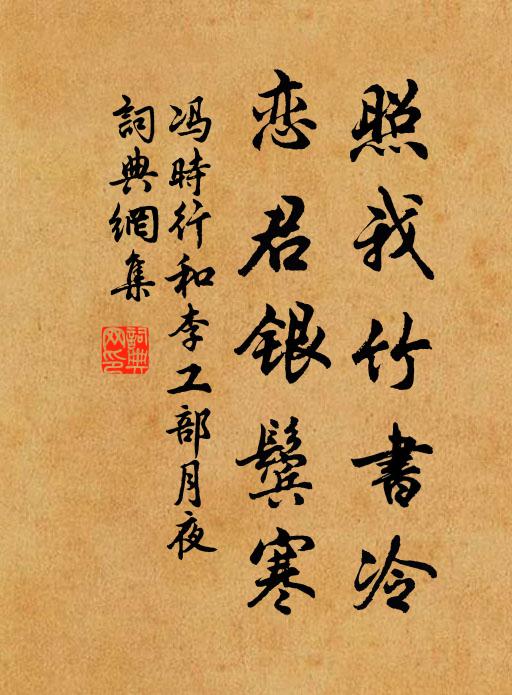 照我竹書冷
恋君銀鬓寒
冯時行和李工部月夜
詞典網集
詞典網印